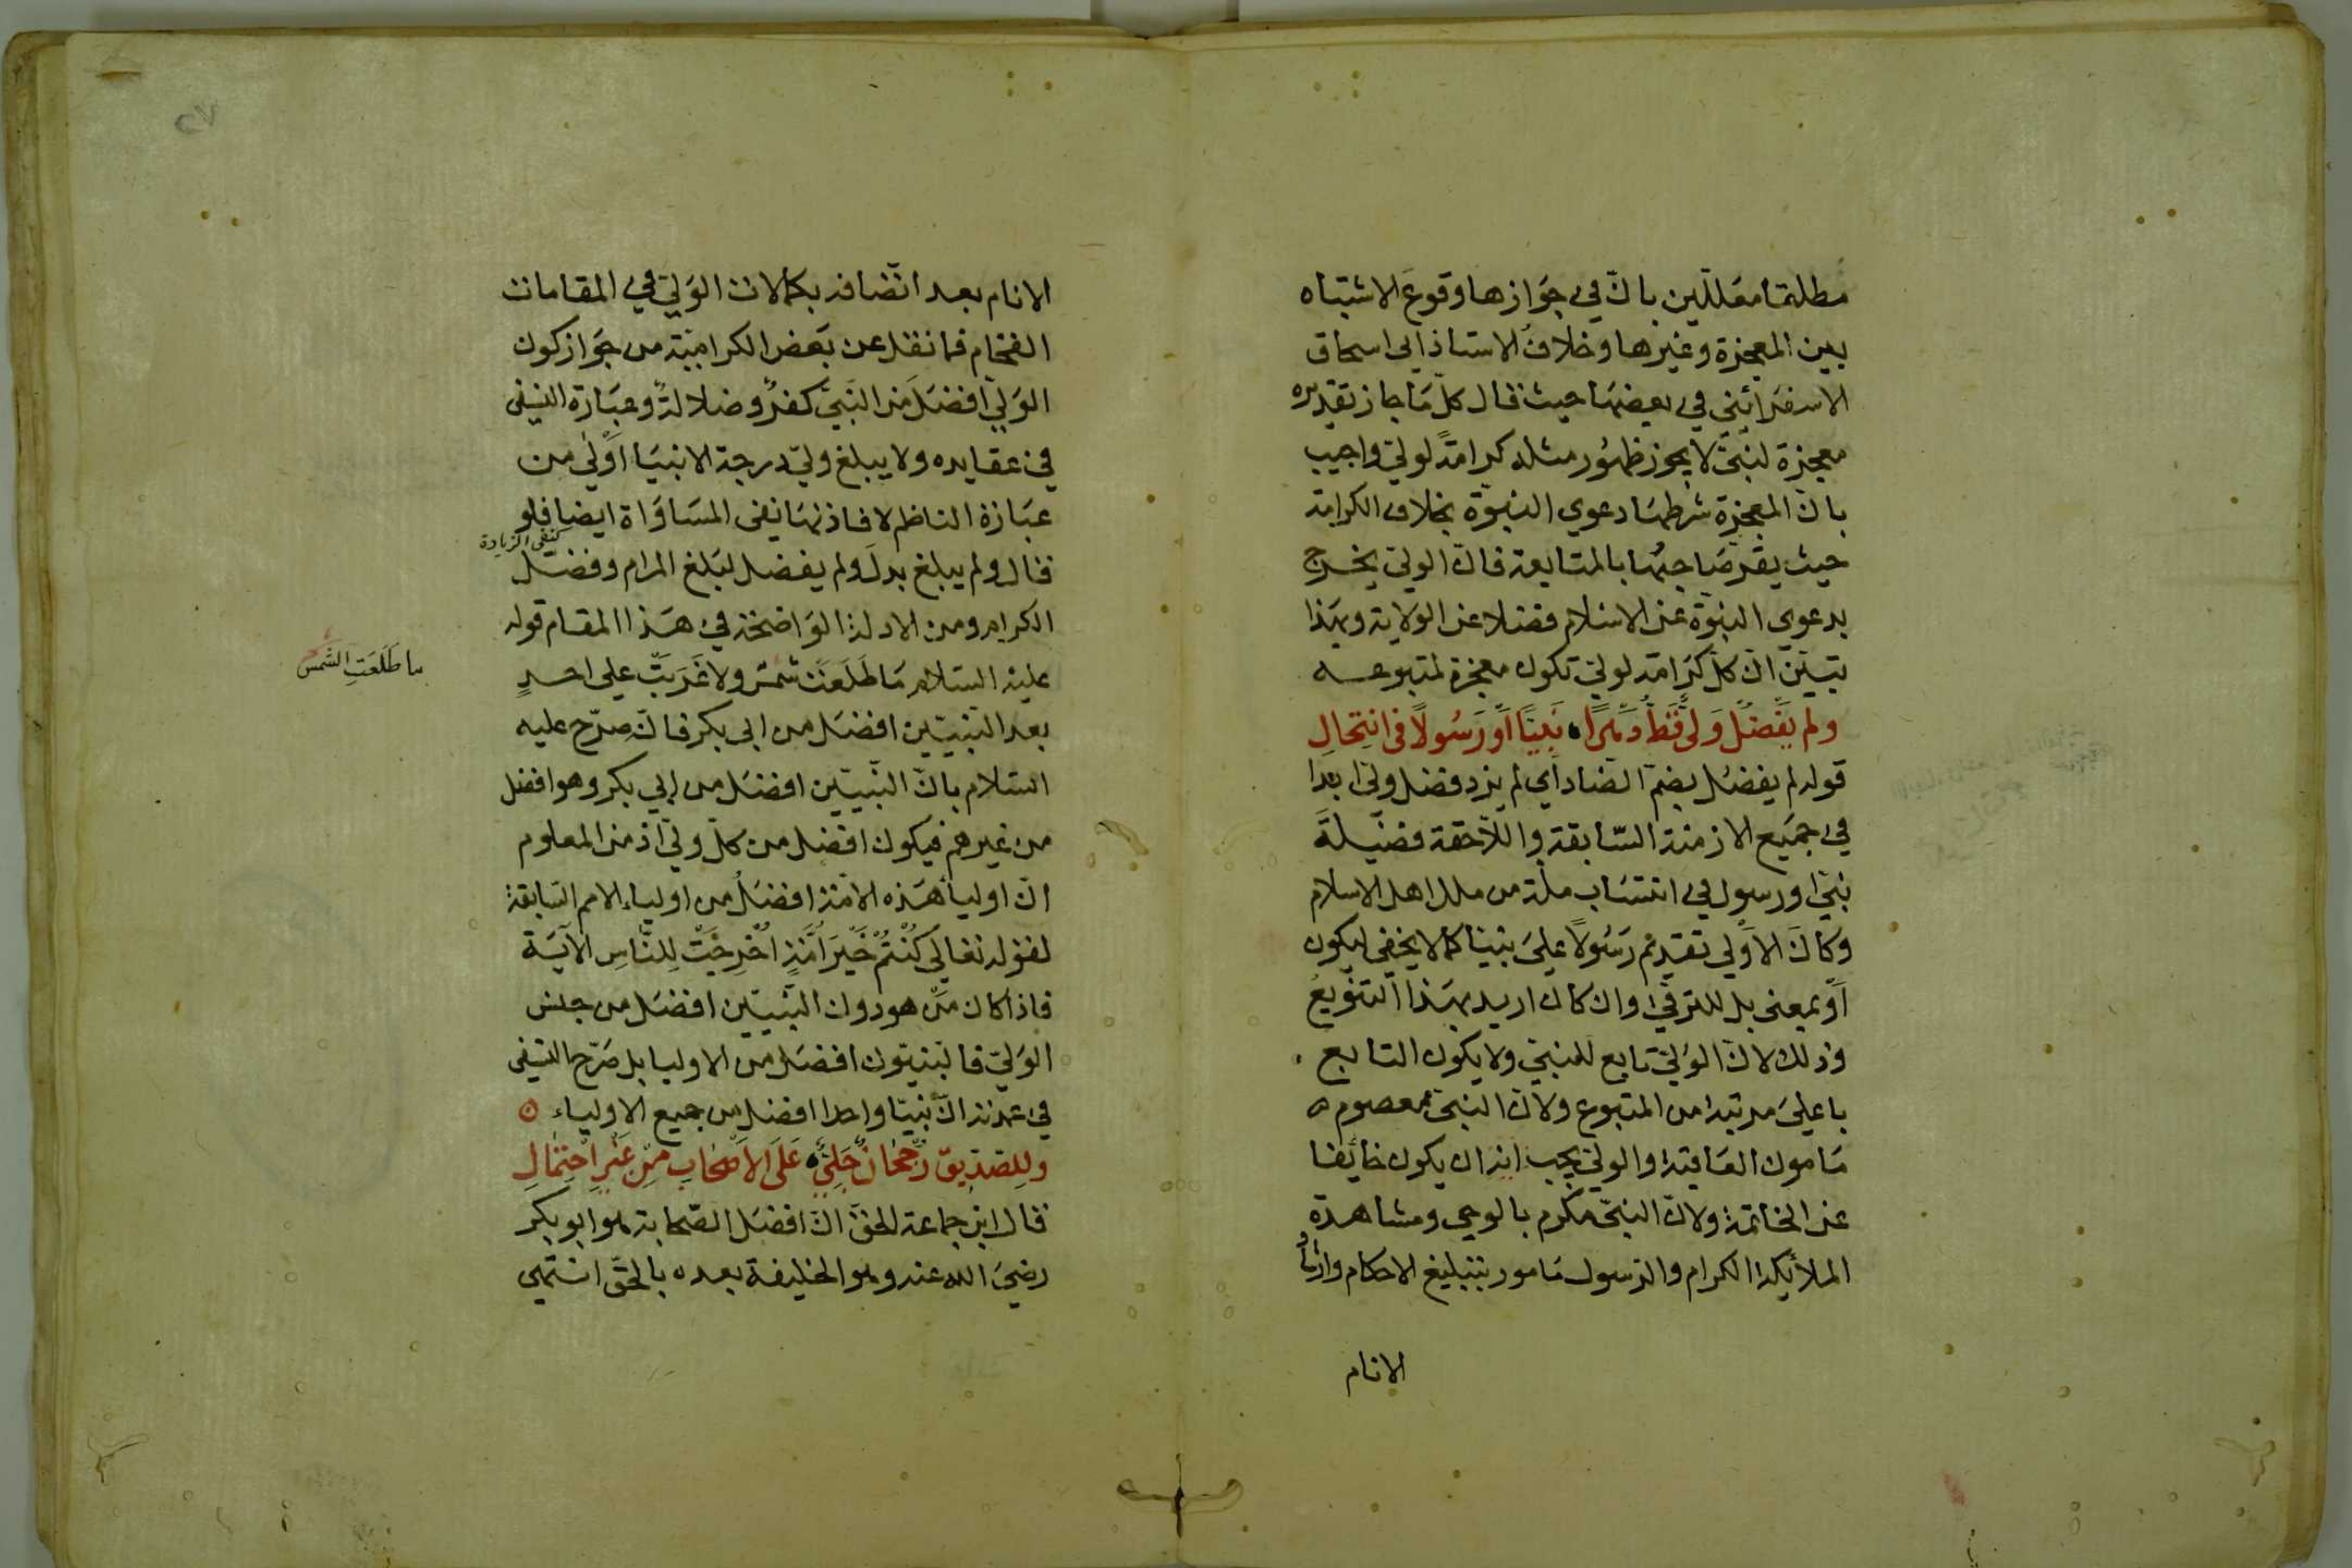 مطلقا معللين بان في جوازها وقوع الاشتباه
بين المعجزة وغيرها وخلاف الاستاذ ابي اسحاق
الاسفرائني في بعضها حيث قال كل ما جاز تقديره
معجزة لنبي لا يجوز ظهور مثله كرامة لولي واجيب
بان المعجزة شرطها دعوى النبوة بخلاف الكرامة
حيث يقر صاحبها بالمتابعة فان الولي يخرج
بدعوى النبوة عن الاسلام فضلا عن الولاية وبهذا
تبين ان كل كرامة لولي تكون معجزة لمتبوعه
ولم يَفْضُلْ وَلِيٌّ قَطُّ دَهْرًا نَبِيًّا أَوْ رَسُولًا في انْتِحَالِ
قوله لم يفضل بضم الضاد اي لم يزد فضل ولي ابدا
في جميع الازمنة السّابقة واللّاحقة فضيلة
نبي او رسول في انتساب ملّة من ملل اهل الاسلام
وكان الاولى تقديم رسولا على نبينا كما لا يخفى ليكون
اَوْ بمعنى بل للترقي وان كان اريد بهذا التنويع
وذلك لان الولي تابع للنبي ولا يكون التابع
باعلى مرتبة من المتبوع ولان النبي معصوم
مامون العاقبة والولي يجب ان يكون خائفا
عن الخاتمة ولان النبي مكرم بالوحي ومشاهدة
الملائكة الكرام والرسول مامور بتبليغ الاحكام وارشاد
الانام
الانام بعد اتّصافه بكمالات الولي في المقامات
الفخام فما نقل عن بعض الكرامية من جواز كون
الولي افضل من النبي كفر وضلالة وعبارة النسفي
في عقايده ولا يبلغ ولي درجة الانبيا اولى من
عبارة الناظم لافادتها نفي المساواة ايضا فلو
كنفي الزيادة
قال ولم يبلغ بدل ولم يفضل لبلغ المرام وفضل
الكرام ومن الادلة الواضحة في هذا المقام قوله
عليه السلام ما طلعت شمس ولا غربت على احدٍ
ما طَلَعَتِ الشمس
بعد النبيين افضل من ابي بكر فانه صرّح عليه
السلام بان النّبيّين افضل من ابي بكر وهو افضل
من غيرهم فيكون افضل من كل ولي اذ من المعلوم
ان اوليا هذه الامة افضل من اولياء الامم السّابقة
لقوله تعالى كُنْتُمْ خَيْرَ أُمَّةٍ اُخْرِجَتْ لِلنَّاسِ الآية
فاذا كان من هو دون النّبيّين افضل من جنس
الولي فالنبيّون افضل من الاوليا بل صرّح النسفي
في عمدته ان نبيّا واحدا افضل من جميع الاولياء
ولِلصّدّيق رُجْحَانٌ جَلِيٌّ عَلَى الاَصْحَابِ مِنْ غَيْرِ احْتِمَالِ
قال ابن جماعة الحق ان افضل الصّحابة هو ابو بكر
رضي الله عنه وهو الخليفة بعده بالحق انتهى